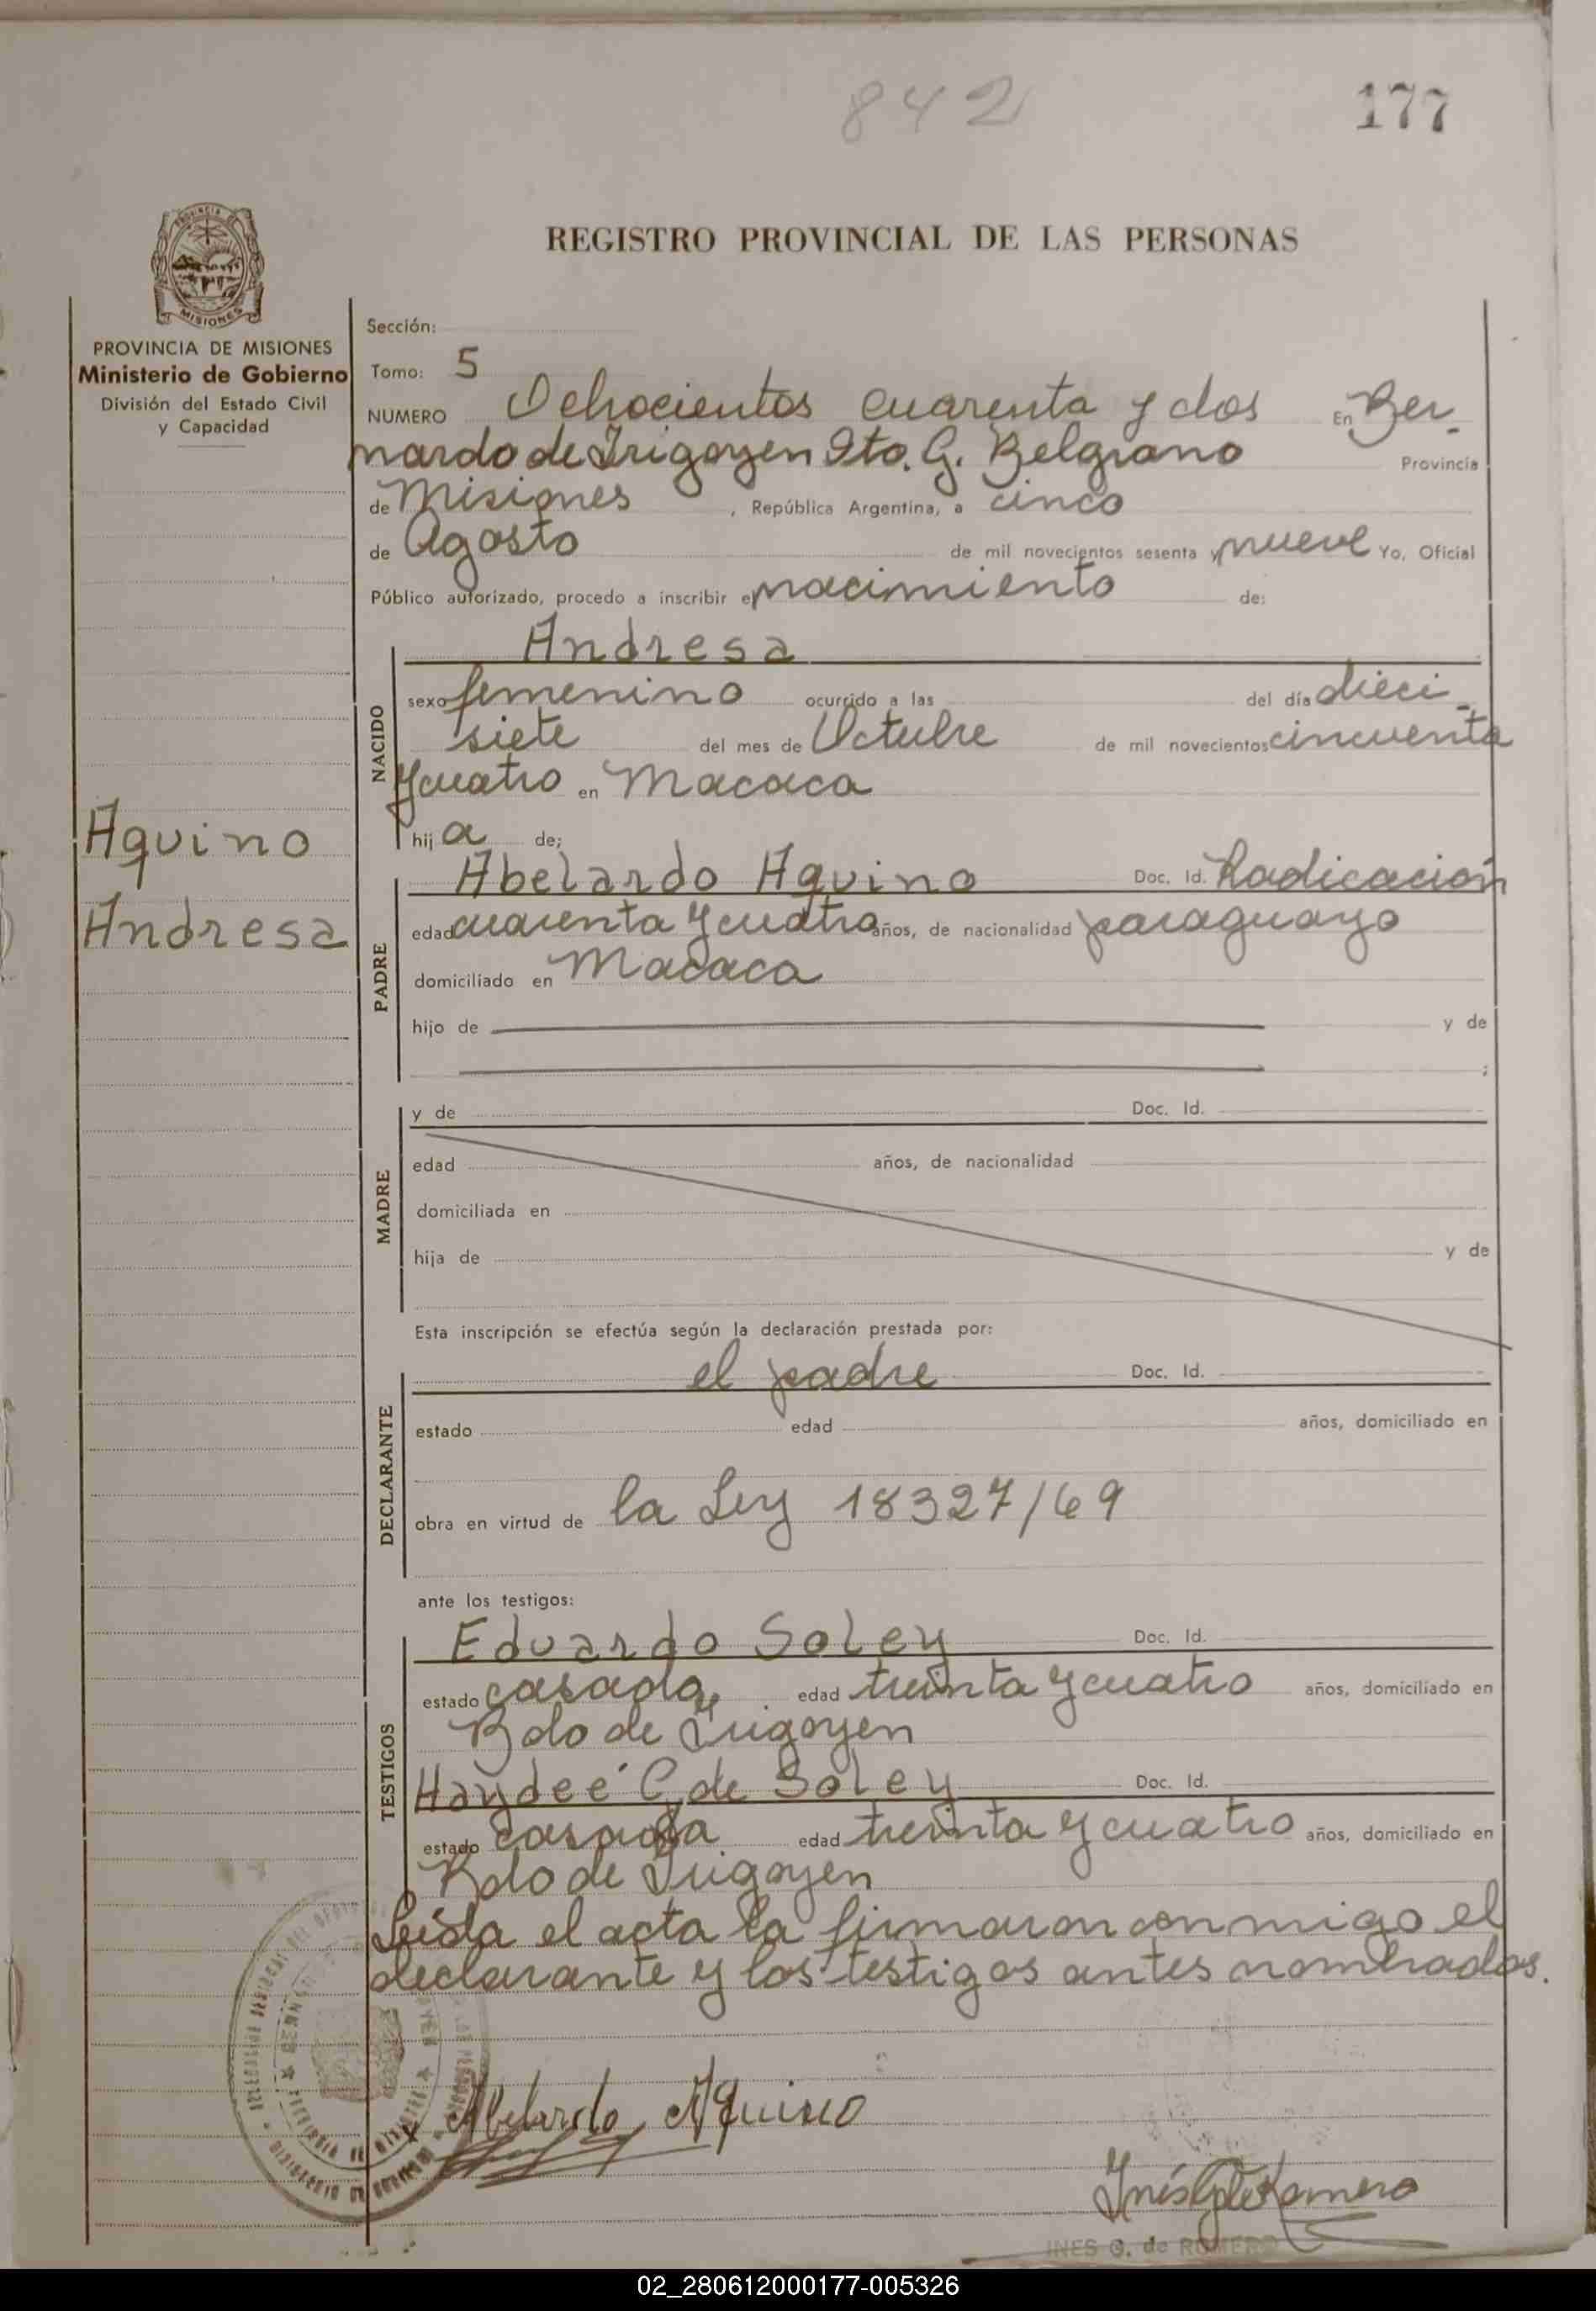 842
177
REGISTRO PROVINCIAL DE LAS PERSONAS
MISIONES
PROVINCIA DE MISIONES
Ministerio de Gobierno
División del Estado Civil
y Capacidad
Sección:
Tomo: 5
NUMERO Ochocientos cuarenta y dos En Ber-
nardo de Irigoyen Dto. G. Belgrano Provincia
de Misiones, República Argentina, a cinco
de Agosto de mil novecientos sesenta y nueve Yo, Oficial
Público autorizado, procedo a inscribir el nacimiento de:
NACIDO
Andresa
sexo femenino ocurrido a las del día dieci-
siete del mes de Octubre de mil novecientos cincuenta
y cuatro en Macaca
hija de;
Aquino
Andresa
PADRE
Abelardo Aquino Doc. Id. Radicación
edad cuarenta y cuatro años, de nacionalidad paraguayo
domiciliado en Macaca
hijo de y de
;
MADRE
y de Doc. Id.
edad años, de nacionalidad
domiciliada en
hija de y de
Esta inscripción se efectúa según la declaración prestada por:
DECLARANTE
el padre Doc. Id.
estado edad años, domiciliado en
obra en virtud de la Ley 18327/69
ante los testigos:
TESTIGOS
Eduardo Soley Doc. Id.
estado casado, edad treinta y cuatro años, domiciliado en
Bdo de Irigoyen
Haydeé C. de Soley Doc. Id.
estado casada edad treinta y cuatro años, domiciliado en
Bdo de Irigoyen
Leída el acta la firmaron conmigo el
declarante y los testigos antes nombrados.
Abelardo Aquino
Inés G de Romero
INES G. de ROMERO
02_280612000177-005326